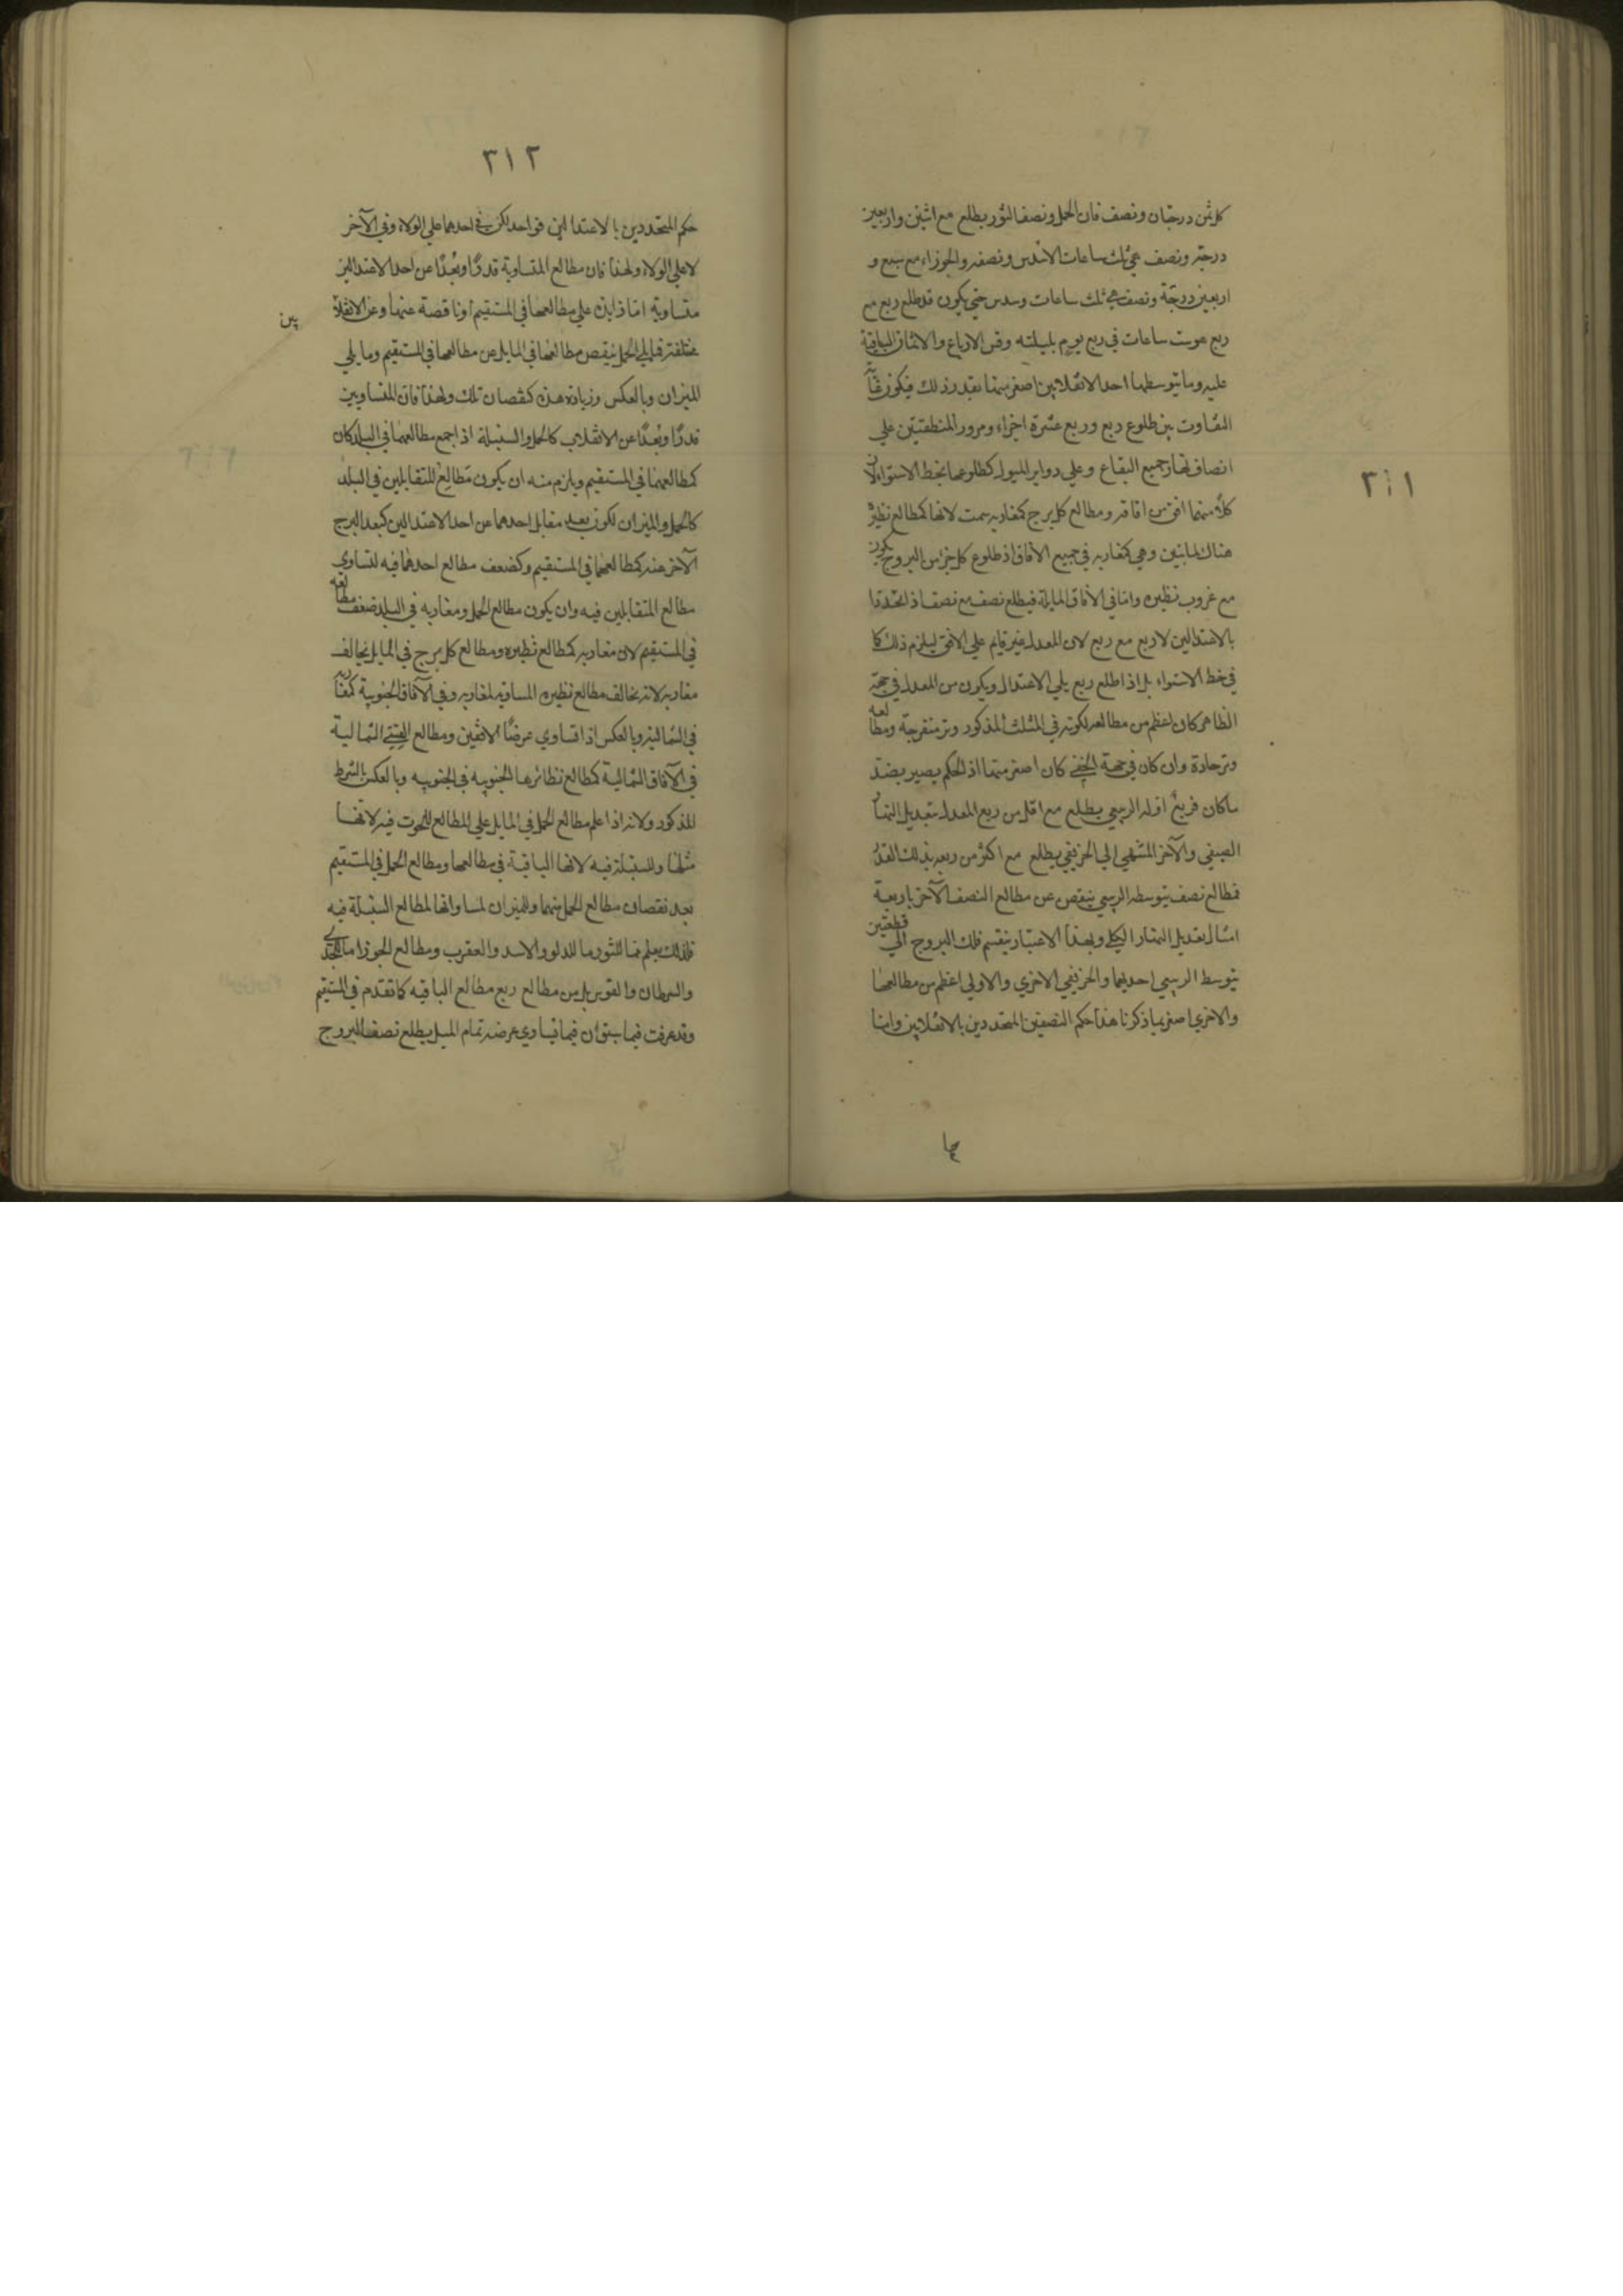 ٣١١
كل ثمن درجتان ونصف فان الحمل ونصف الثور يطلع مع اثنين واربعين
درجة ونصف هي ثلث ساعات الا سدس ونصفه والجوزاء مع سبع و
اربعين درجة ونصف هي ثلث ساعات وسدس حتي يكون قد طلع ربع مع
ربع هو ست ساعات في ربع يوم بليلته وقس الارباع والاثمان الباقية
عليه وما يتوسطها احد الانقلابين اصغر منها بقدر ذلك فيكون غاية
التفاوت بين طلوع ربع وربع عشرة اجزاء ومرور المنطقتين علي
انصاف نهار جميع البقاع وعلي دواير الميول كطلوعها بخط الاستواء لان
كلا منهما افق من افاقه ومطالع كل برج كمغاربه سمت لانها كمطالع نظيره
هناك لما تبين وهي كمغاربه في جميع الآفاق اذ طلوع كل جزء من البروج يكون
مع غروب نظيره واما في الآفاق المايلة فيطلع نصف مع نصف اذ اتحددا
بالاعتدالين لا ربع مع ربع لان المعدل غير قايم علي الافق ليلزم ذلك كما
في خط الاستواء بل اذا طلع ربع يلي الاعتدال ويكون من المعدل في جهة
الظاهر كان اعظم من مطالعه لكونه في المثلث المذكور وتر منفرجة ومطالعه
وتر حادة وان كان في جهة الخفي كان اصغر منها اذ الحكم يصير بضد
ما كان فربع اوله الربيعي يطلع مع اقل من ربع المعدل بتعديل النهار
الصيفي والآخر المنتهي الي الخريفي يطلع مع اكثر من ربعه بذلك القدر
فمطالع نصف يتوسطه الربيعي ينقص عن مطالع النصف الآخر باربعة
امثال تعديل النهار الكلي وبهذا الاعتبار ينقسم فلك البروج الي قطعتين
يتوسط الربيعي احديهما والخريفي الاخري والاولي اعظم من مطالعها
والاخري اصغر بما ذكرنا هذا حكم النصفين المتحددين بالانقلابين واما
٣١٢
حكم المتحددين بالاعتدالين فواحد لكن في احدهما علي الولاء وفي الآخر
لا علي الولاء ولهذا فان مطالع المتساوية قدرًا وبُعدًا عن احد الاعتدالين
متساوية اما زايدة علي مطالعها في المستقيم أو ناقصة عنها وعن الانقلا
بين
مختلفة فما يلي الحمل ينقص مطالعها في المايل عن مطالعها في المستقيم وما يلي
الميزان وبالعكس وزيادة هذه كنقصان تلك ولهذا فان المتساويين
قدرًا وبُعدًا عن الانقلاب كالحمل والسنبلة اذا جمع مطالعهما في البلد كان
كمطالعهما في المستقيم ويلزم منه ان يكون مطالع المتقابلين في البلد
كالحمل والميزان لكون بعد مقابل احدهما عن احد الاعتدالين كبعد البرج
الآخر عنه كمطالعهما في المستقيم وكضعف مطالع احدهما فيه لتساوي
مطالع المتقابلين فيه وان يكون مطالع الحمل ومغاربه في البلد ضعف مطالعه
في المستقيم لان مغاربه كمطالع نظيره ومطالع كل برج في المايل يخالف
مغاربه لانه يخالف مطالع نظيره المساوية لمغاربه وفي الآفاق الجنوبية كمغاربه
في الشمالية وبالعكس اذا تساوي عرضًا الافقين ومطالع القسي الشمالية
في الآفاق الشمالية كمطالع نظائرها الجنوبيه في الجنوبيه وبالعكس بالشرط
المذكور ولانه اذا علم مطالع الحمل في المايل علي المطالع للحوت فيه لانها
مثلها وللسنبلة فيه لانها الباقية في مطالعها ومطالع الحمل في المستقيم
بعد نقصان مطالع الحمل منهما وللميزان لمساواتها لمطالع السنبلة فيه
فلذلك يعلم مما للثور ما للدلو والاسد والعقرب ومطالع الجوزا ما للجدي
والسرطان والقوس بل من مطالع ربع مطالع الباقيه كما تقدم في المستقيم
وقد عرفت فيما سبق ان فيما يساوي عرضه تمام الميل يطلع نصف البروج